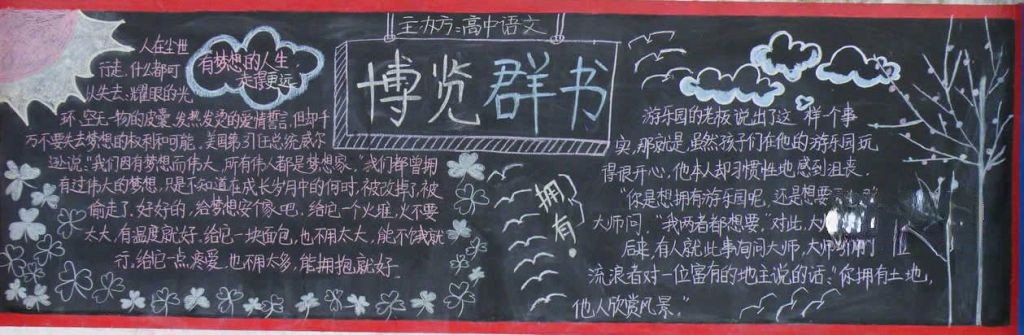 主办方:高中语文
博览群书
有梦想的人生
走得更远
人在尘世
行走,什么都可
以失去:耀眼的光
环、空无一物的皮囊、发热发烫的爱情誓言,但却千
万不要失去梦想的权利和可能。美国第31任总统威尔
逊说:"我们因有梦想而伟大,所有伟人都是梦想家。"我们都曾拥
有过伟大的梦想,只是不知道在成长岁月中的何时,被改掉了,被
偷走了。好好的,给梦想安个家吧。给它一个火堆,火不要
太大,有温度就好。给它一块面包,也不用太大,能不饿就
行。给它一点疼爱,也不用太多,能拥抱就好。
拥有!
游乐园的老板说出了这一样个事
实,那就是,虽然孩子们在他的游乐园玩
得很开心,他本人却习惯性地感到沮丧。
"你是想拥有游乐园呢,还是想要
大师问。"我两者都想要。"对此,大
后来,有人就此事询问大师,大师引用了一位
流浪者对一位富有的地主说的话:"你拥有土地,
他人欣赏风景。"